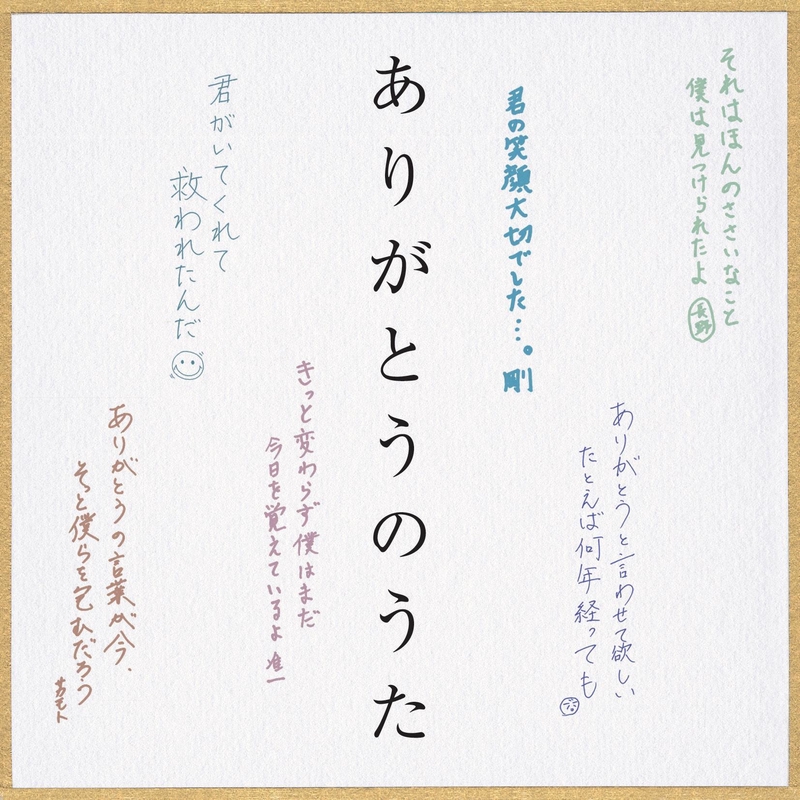 それはほんのささいなこと
僕は見つけられたよ
長野
ありがとうと言わせて欲しい
たとえば何年経っても
君の笑顔大切でした…。剛
ありがとうのうた
きっと変わらず僕はまだ
今日を覚えているよ 准一
君がいてくれて
救われたんだ
ありがとうの言葉が今、
そっと僕らを包むだろう
サカモト